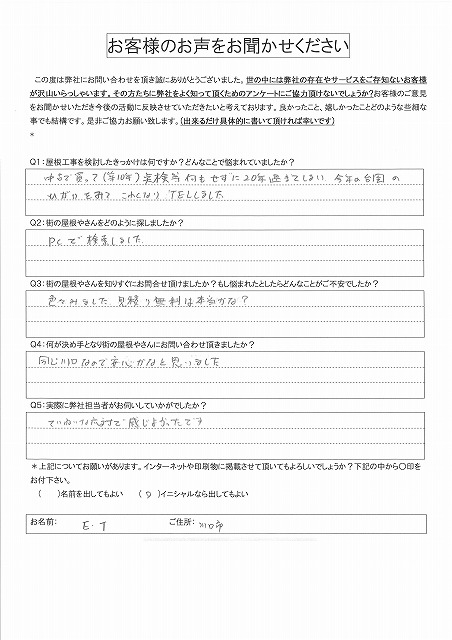 お客様のお声をお聞かせください
この度は弊社にお問い合わせを頂き誠にありがとうございました。世の中には弊社の存在やサービスをご存知ないお客様
が沢山いらっしゃいます。その方たちに弊社をよく知って頂くためのアンケートにご協力頂けないでしょうか?お客様のご意見
をお聞かせいただき今後の活動に反映させていただきたいと考えております。良かったこと、嬉しかったことどのような些細な
事でも結構です。是非ご協力お願い致します。(出来るだけ具体的に書いて頂ければ幸いです)
*
Q1:屋根工事を検討したきっかけは何ですか?どんなことで悩まれていましたか?
中古で買って(築10年)実検当何もせずに20年過ぎてしまい 今年の台風の
ひがいをみて これになり TELしました
Q2:街の屋根やさんをどのように探しましたか?
PCで検索しました
Q3:街の屋根やさんを知りすぐにお問合せ頂けましたか?もし悩まれたとしたらどんなことがご不安でしたか?
色々みました 見積り無料は本当かな?
Q4:何が決め手となり街の屋根やさんにお問い合わせ頂きましたか?
同じ川口なので安心かなと思いました
Q5:実際に弊社担当者がお伺いしていかがでしたか?
ていねいな応対で感じよかったです
*上記についてお願いがあります。インターネットや印刷物に掲載させて頂いてもよろしいでしょうか?下記の中から〇印を
お付下さい。
( )名前を出してもよい (〇)イニシャルなら出してもよい
お名前: E.T ご住所: 川口市